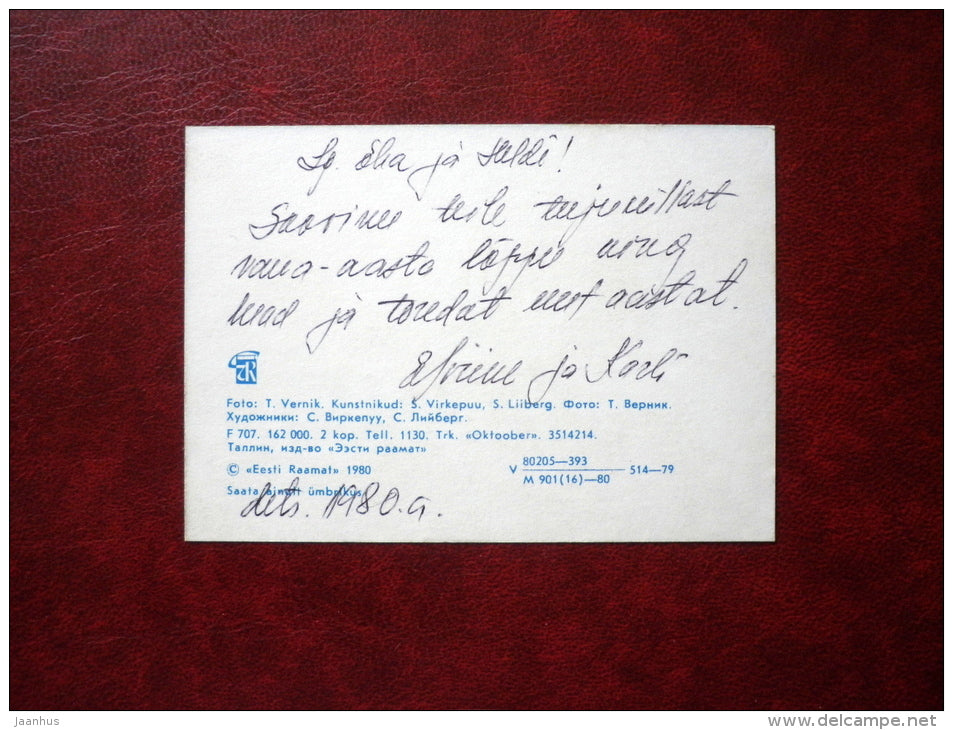 Lp. Õha ja Suldi!
Soovime teile tujuküllast
vana-aasta lõppu ning
head ja toredat uut aastat.
ja Karli
TR
Foto: T. Vernik. Kunstnikud: S. Virkepuu, S. Liiberg. Фото: Т. Верник.
Художники: С. Виркепуу, С. Лийберг.
F 707. 162 000. 2 kop. Tell. 1130. Trk. «Oktoober». 3514214.
Таллин, изд-во «Ээсти раамат»
© «Eesti Raamat» 1980
V 80205—393
M 901(16)—80
514—79
Saata ainult ümbrikus
dets. 1980.a.
jaanhus
www.delcampe.net